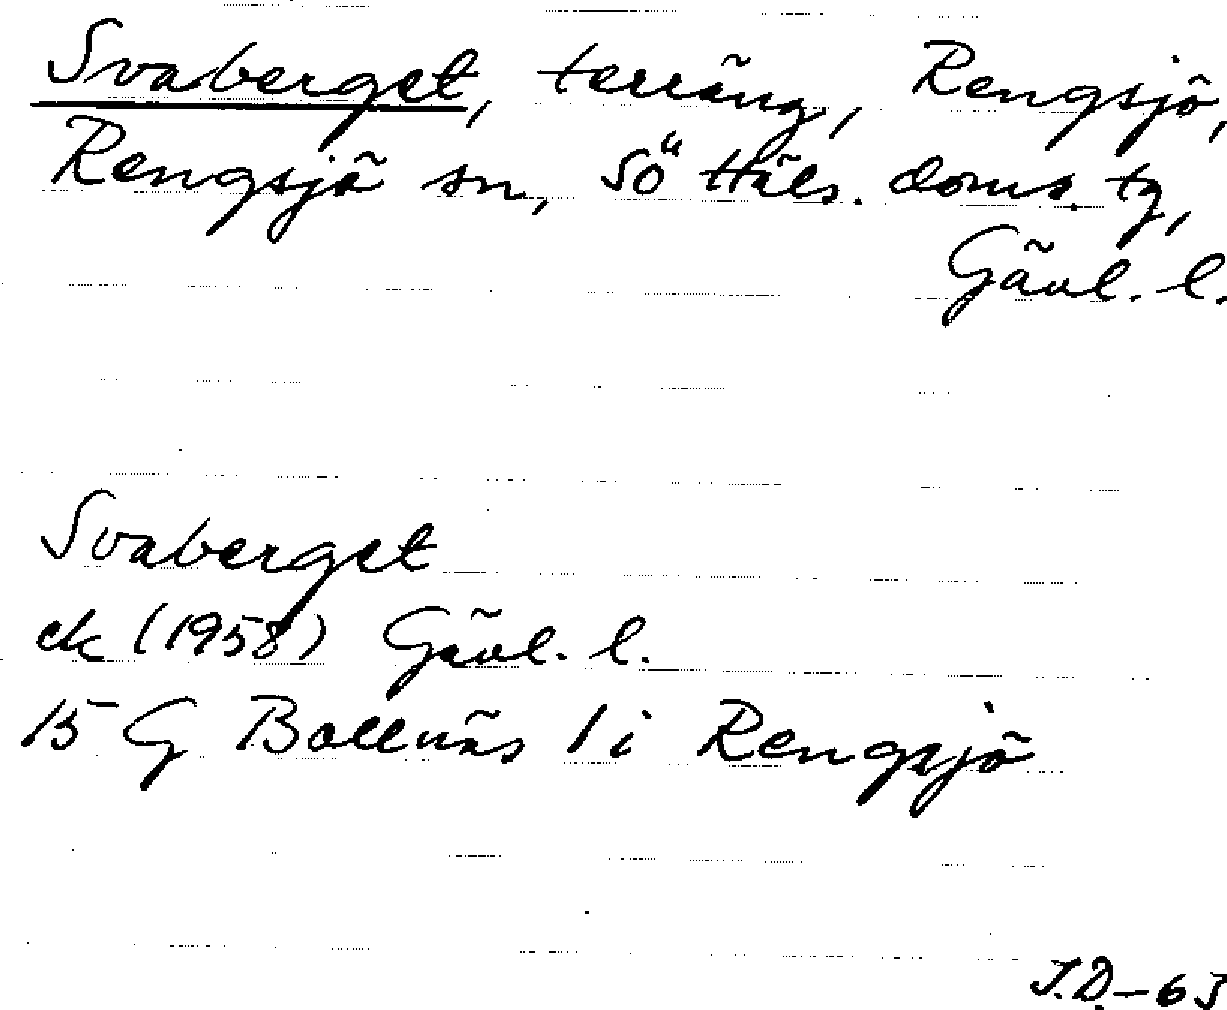 Svaberget, terräng, Rengsjö,
Rengsjö sn, Sö Häls. doms. tg,
Gävl. l.
Svaberget
ek (1958) Gävl. l.
15 G Bollnäs 1i Rengsjö
J.D.-63